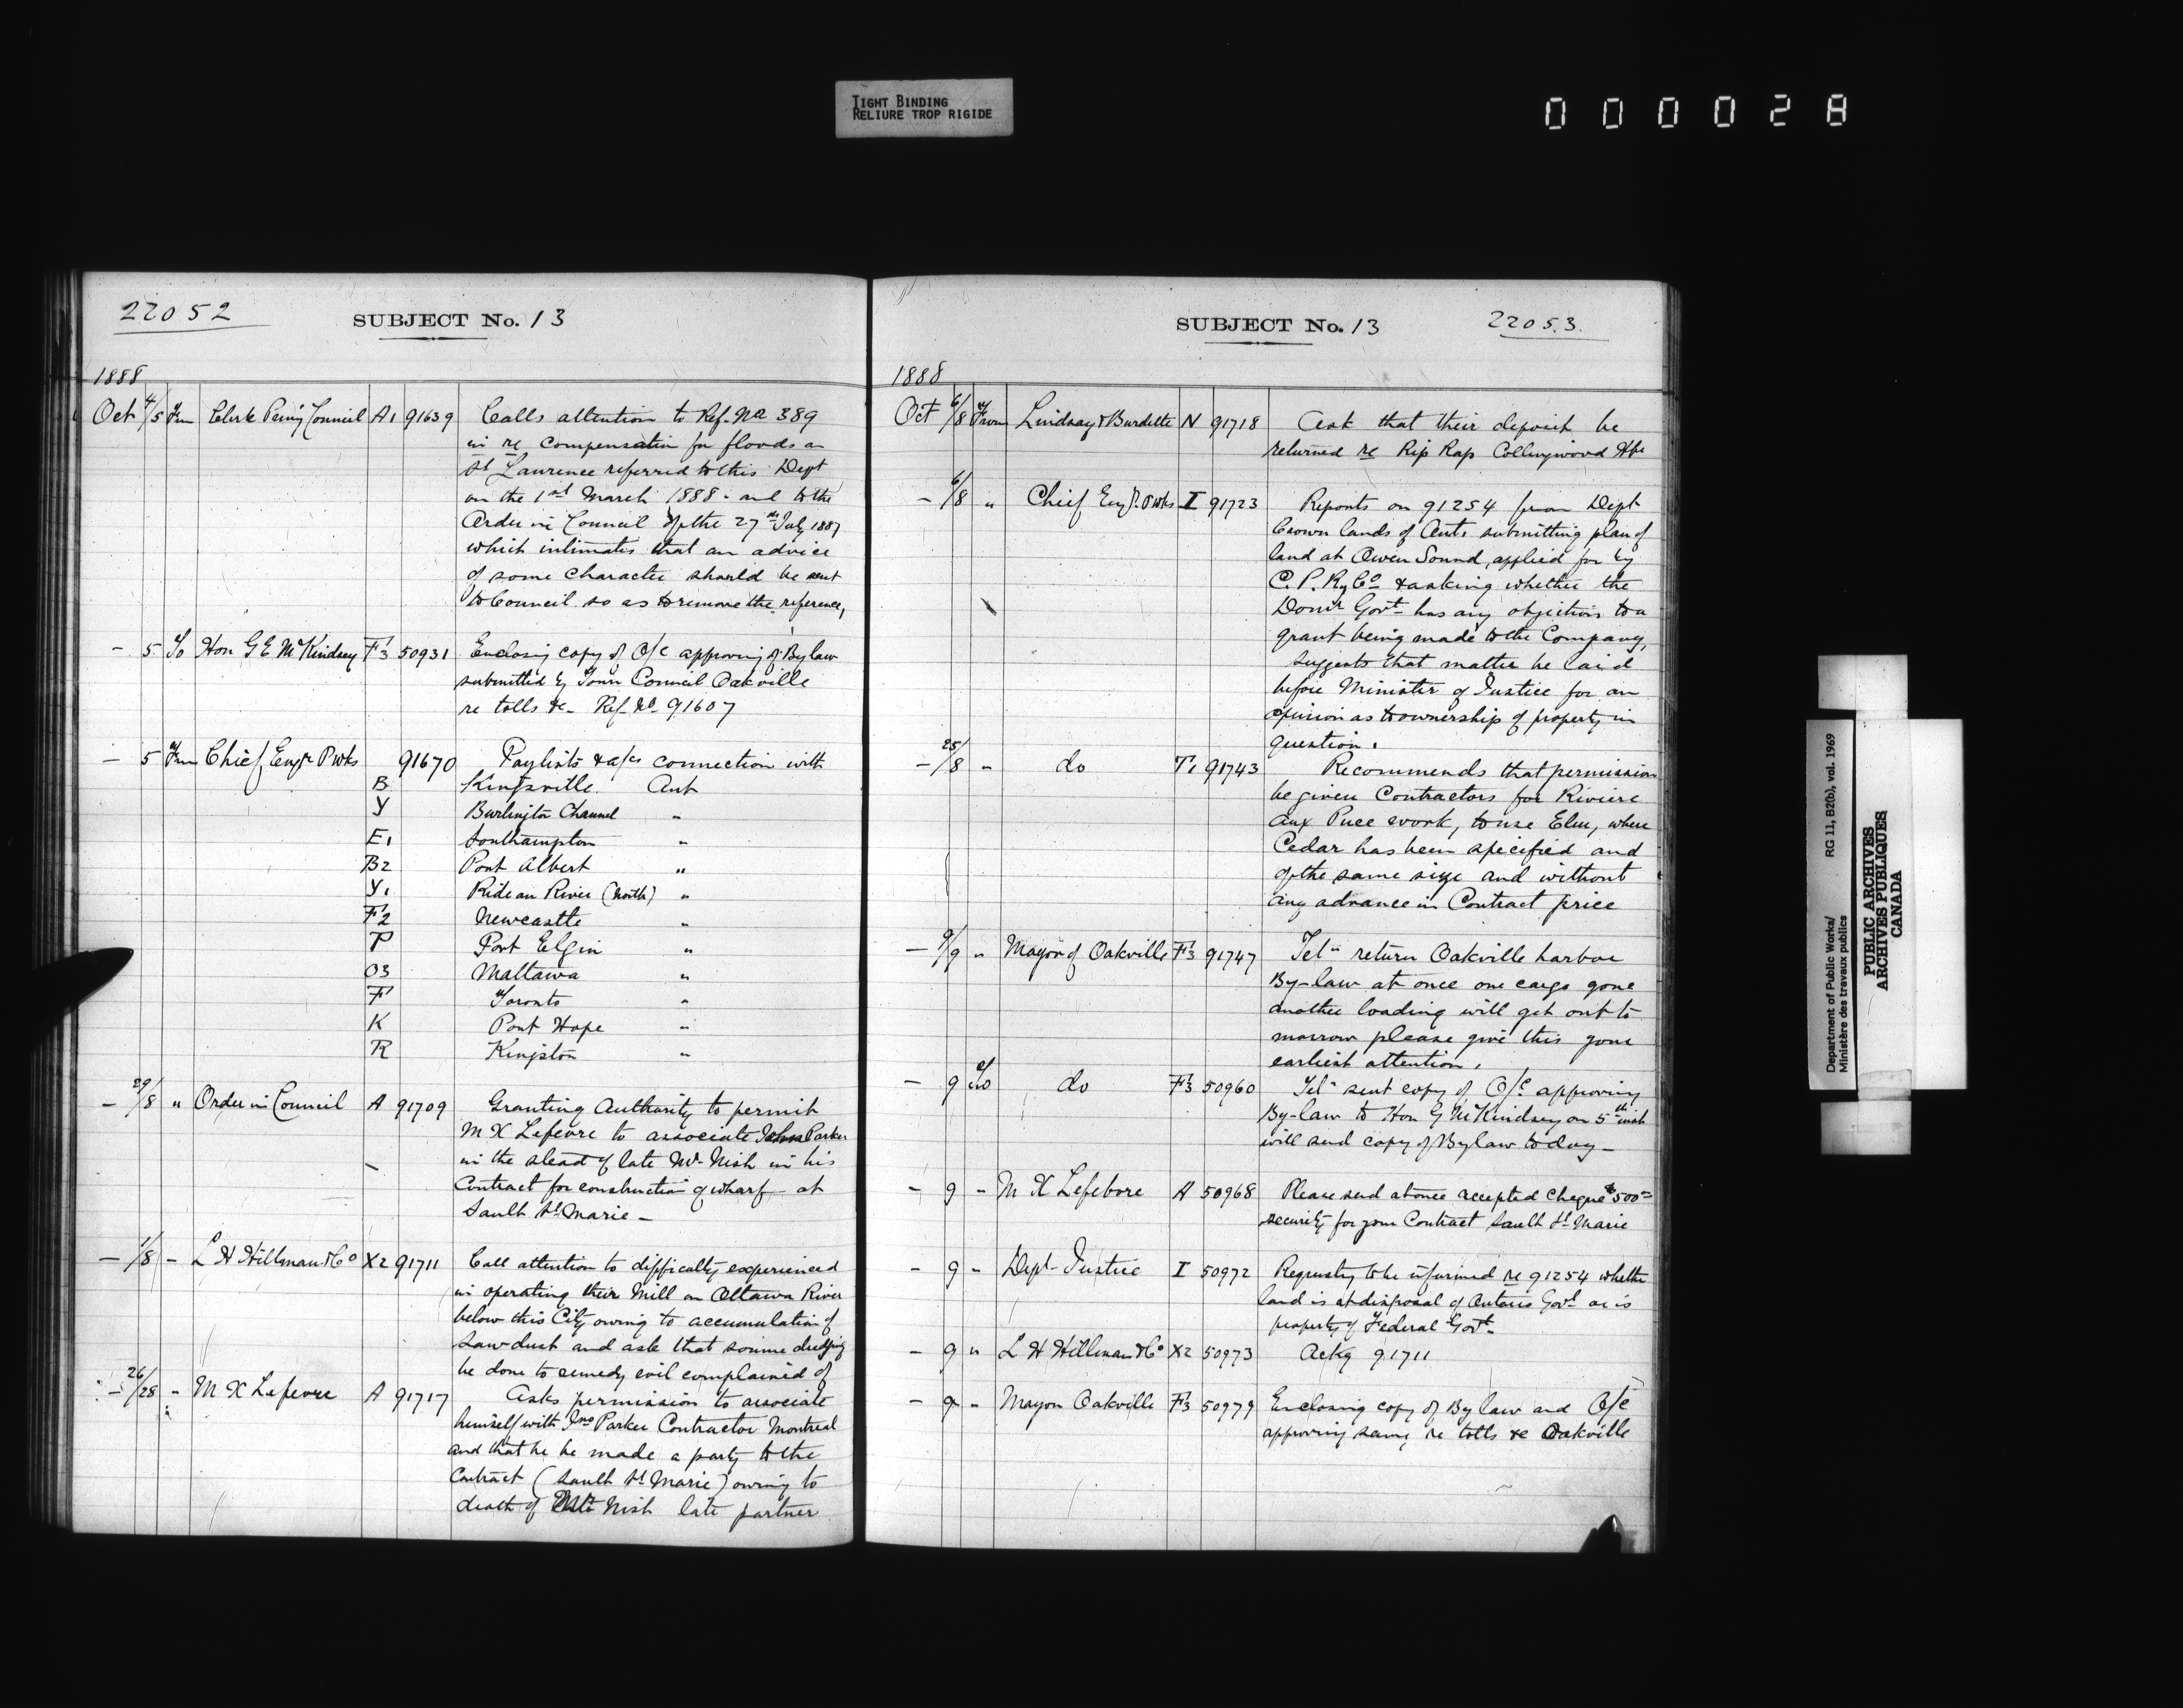 TIGHT BINDING
RELIURE TROP RIGIDE
000028
22052
SUBJECT No. 13
1888
Oct 4/5 From Clerk Privy Council A1 91639 Calls attention to Ref. No 389
in re compensation for floods on
St Lawrence referred to this Dept
on the 1st March 1888 - and to the
Order in Council of the 27th July 1887
which intimates that an advice
of some character should be sent
to Council so as to remove the reference,
- 5 To Hon G E McKindsey F3 50931 Enclosing copy of O/C approving of By law
submitted by Town Council Oakville
re tolls &c - Ref. No. 91607
- 5 From Chief Engr P Wks 91670 Paylists & a/cs connection with
B Kingsville Ont
Y Burlington Channel "
E1 Southampton "
B2 Port Albert "
Y1 Rideau River (North) "
F2 Newcastle "
P Port Elgin "
O3 Mattawa "
F Toronto "
K Port Hope "
R Kingston "
- 29/8 " Order in Council A 91709 Granting Authority to permit
M X Lefevre to associate John Parker
in the stead of late Mr Nish in his
Contract for construction of wharf at
Sault St Marie -
- 1/8 - L H Hillman & Co X2 91711 Call attention to difficulty experienced
in operating their Mill on Ottawa River
below this City owing to accumulation of
Sawdust and ask that some dredging
be done to remedy evil complained of
- 26/28 " M X Lefevre A 91717 Asks permission to associate
himself with Jno Parker Contractor Montreal
and that he be made a party to the
Contract (Sault St Marie) owing to
death of Nish late partner
SUBJECT No. 13
22053.
1888
Oct 6/8 From Lindsay & Burdette N 91718 Ask that their deposit be
returned re Rip Rap Collingwood Hbr
- 6/8 " Chief Engr. P Wks I 91723 Reports on 91254 from Dept
Crown lands of Ont. submitting plan of
land at Owen Sound, applied for by
C. P. Ry Co & asking whether the
Domn Govt has any objections to a
grant being made to the Company,
suggests that matter be laid
before Minister of Justice for an
opinion as to ownership of property in
question.
- 25/8 " do T1 91743 Recommends that permission
be given Contractors for Riviere
aux Puce work, to use Elm, where
Cedar has been specified and
of the same size and without
any advance in Contract price
- 9/9 " Mayor of Oakville F3 91747 Tel" return Oakville harbor
By-law at once one cargo gone
another loading will get out to
morrow please give this your
earliest attention.
- 9 To do F3 50960 Tel" sent copy of O/C approving
By-law to Hon G McKindsey on 5th inst
will send copy of By law today -
- 9 " M X Lefebvre A 50968 Please send at once accepted Cheque $500=
security for your Contract Sault St Marie
- 9 " Dept Justice I 50972 Requesting to be informed re 91254 whether
land is at disposal of Ontario Govt or is
property of Federal Govt -
- 9 " L H Hillman & Co X2 50973 Ackg 91711
- 9 " Mayor Oakville F3 50979 Enclosing copy of By law and O/C
approving same, re tolls &c Oakville
Department of Public Works/
Ministère des travaux publics
RG 11, B2(b), vol. 1969
PUBLIC ARCHIVES
ARCHIVES PUBLIQUES
CANADA